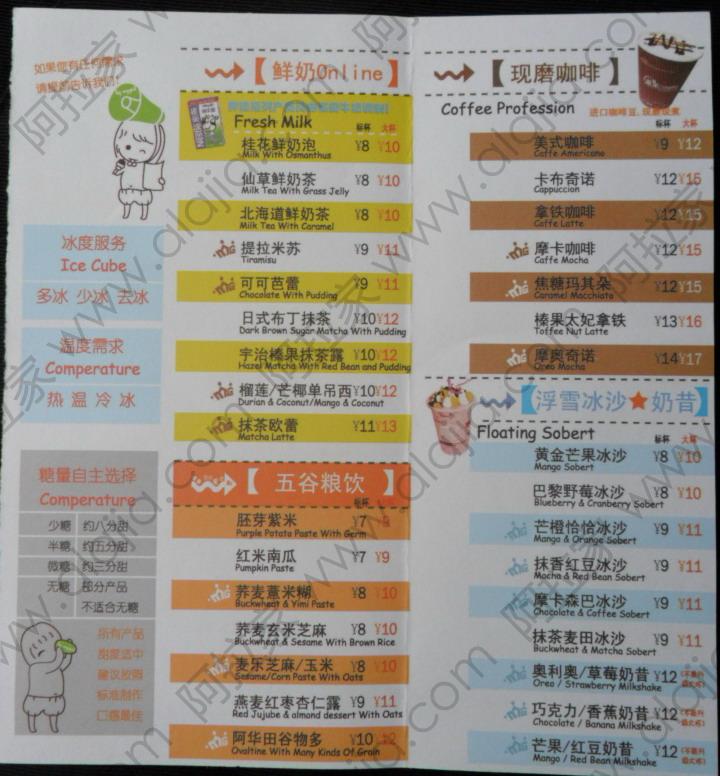 如果您有任何需求
请提前告诉我们!
冰度服务
Ice Cube
多冰 少冰 去冰
温度需求
Comperature
热 温 冷 冰
糖量自主选择
Comperature
少糖 约八分甜
半糖 约五分甜
微糖 约三分甜
无糖 部分产品
不适合无糖
所有产品
甜度适中
建议按照
标准制作
口感最佳
【鲜奶Online】
Fresh Milk
标杯 大杯
桂花鲜奶泡 ¥8 ¥10
Milk With Osmanthus
仙草鲜奶茶 ¥8 ¥10
Milk Tea With Grass Jelly
北海道鲜奶茶 ¥8 ¥10
Milk Tea With Caramel
提拉米苏 ¥9 ¥11
Tiramisu
可可芭蕾 ¥9 ¥11
Chocolate With Pudding
日式布丁抹茶 ¥10 ¥12
Dark Brown Sugar Matcha With Pudding
宇治榛果抹茶露 ¥10 ¥12
Hazel Matcha With Red Bean and Pudding
榴莲/芒椰单吊西 ¥10 ¥12
Durian & Coconut/Mango & Coconut
抹茶欧蕾 ¥11 ¥13
Matcha Latte
【五谷粮饮】
标杯
胚芽紫米 ¥7 ¥9
Purple Potato Paste With Germ
红米南瓜 ¥7 ¥9
Pumpkin Paste
荞麦薏米糊 ¥8 ¥10
Buckwheat & Yimi Paste
荞麦玄米芝麻 ¥8 ¥10
Buckwheat & Sesame With Brown Rice
麦乐芝麻/玉米 ¥8 ¥10
Sesame/Corn Paste With Oats
燕麦红枣杏仁露 ¥9 ¥11
Red Jujube & almond dessert With Oats
阿华田谷物多 ¥10 ¥12
Ovaltine With Many Kinds Of Grain
【现磨咖啡】
Coffee Profession
进口咖啡豆,现磨现煮
标杯 大杯
美式咖啡 ¥9 ¥12
Caffe Americano
卡布奇诺 ¥12 ¥15
Cappuccion
拿铁咖啡 ¥12 ¥15
Caffe Latte
摩卡咖啡 ¥12 ¥15
Caffe Mocha
焦糖玛其朵 ¥12 ¥15
Caramel Macchiato
榛果太妃拿铁 ¥13 ¥16
Toffee Nut Latte
摩奥奇诺 ¥14 ¥17
Oreo Mocha
【浮雪冰沙★奶昔】
Floating Sobert
标杯 大杯
黄金芒果冰沙 ¥8 ¥10
Mango Sobert
巴黎野莓冰沙 ¥8 ¥10
Blueberry & Cranberry Sobert
芒橙恰恰冰沙 ¥9 ¥11
Mango & Orange Sobert
抹香红豆冰沙 ¥9 ¥11
Mocha & Red Bean Sobert
摩卡森巴冰沙 ¥9 ¥11
Chocolate & Coffee Sobert
抹茶麦田冰沙 ¥9 ¥11
Buckwheat & Matcha Sobert
奥利奥/草莓奶昔 ¥12
Oreo / Strawberry Milkshake
巧克力/香蕉奶昔 ¥12
Chocolate / Banana Milkshake
芒果/红豆奶昔 ¥12
Mango / Red Bean Milkshake
阿拉家 www.alajia.com